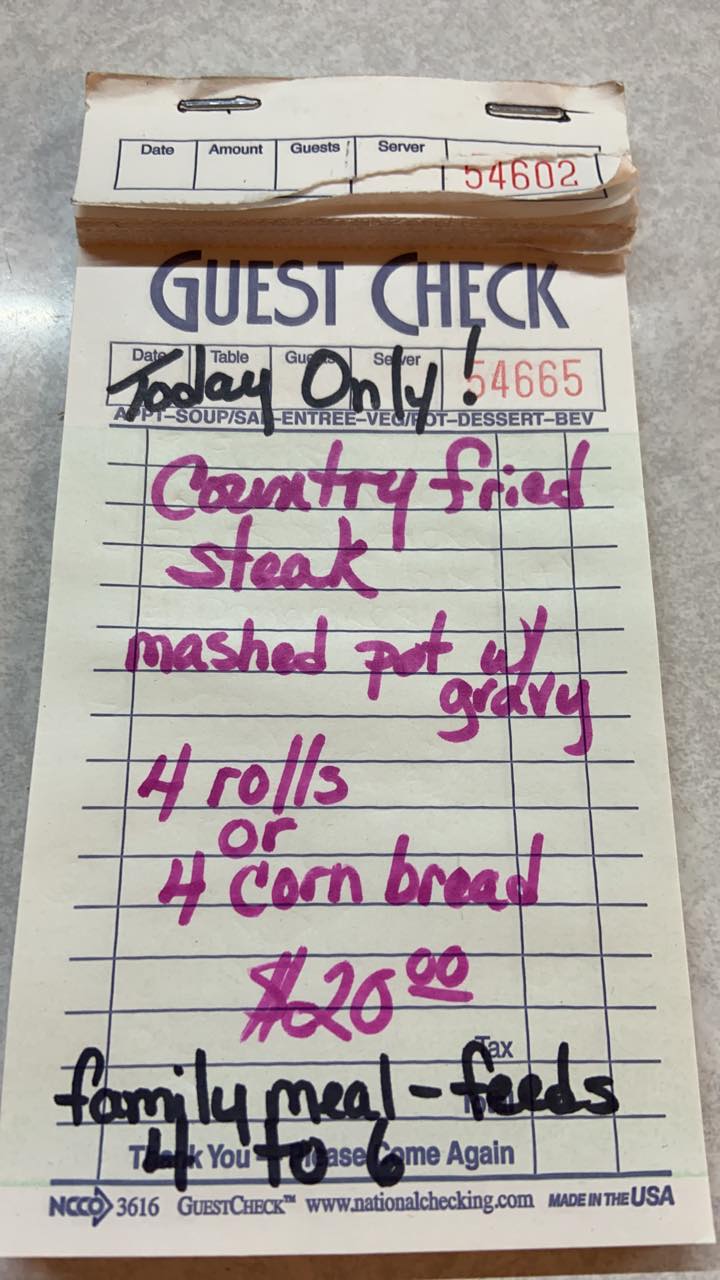 Date Amount Guests Server
54602
GUEST CHECK
Date Table Guests Server
54665
Today Only!
APPT-SOUP/SAL-ENTREE-VEG/POT-DESSERT-BEV
Country fried
steak
mashed pot w/
gravy
4 rolls
or
4 Corn bread
$20 00
Tax
Total
family meal - feeds
4 to 6
Thank You - Please Come Again
NCCO 3616 GUESTCHECK™ www.nationalchecking.com MADE IN THE USA